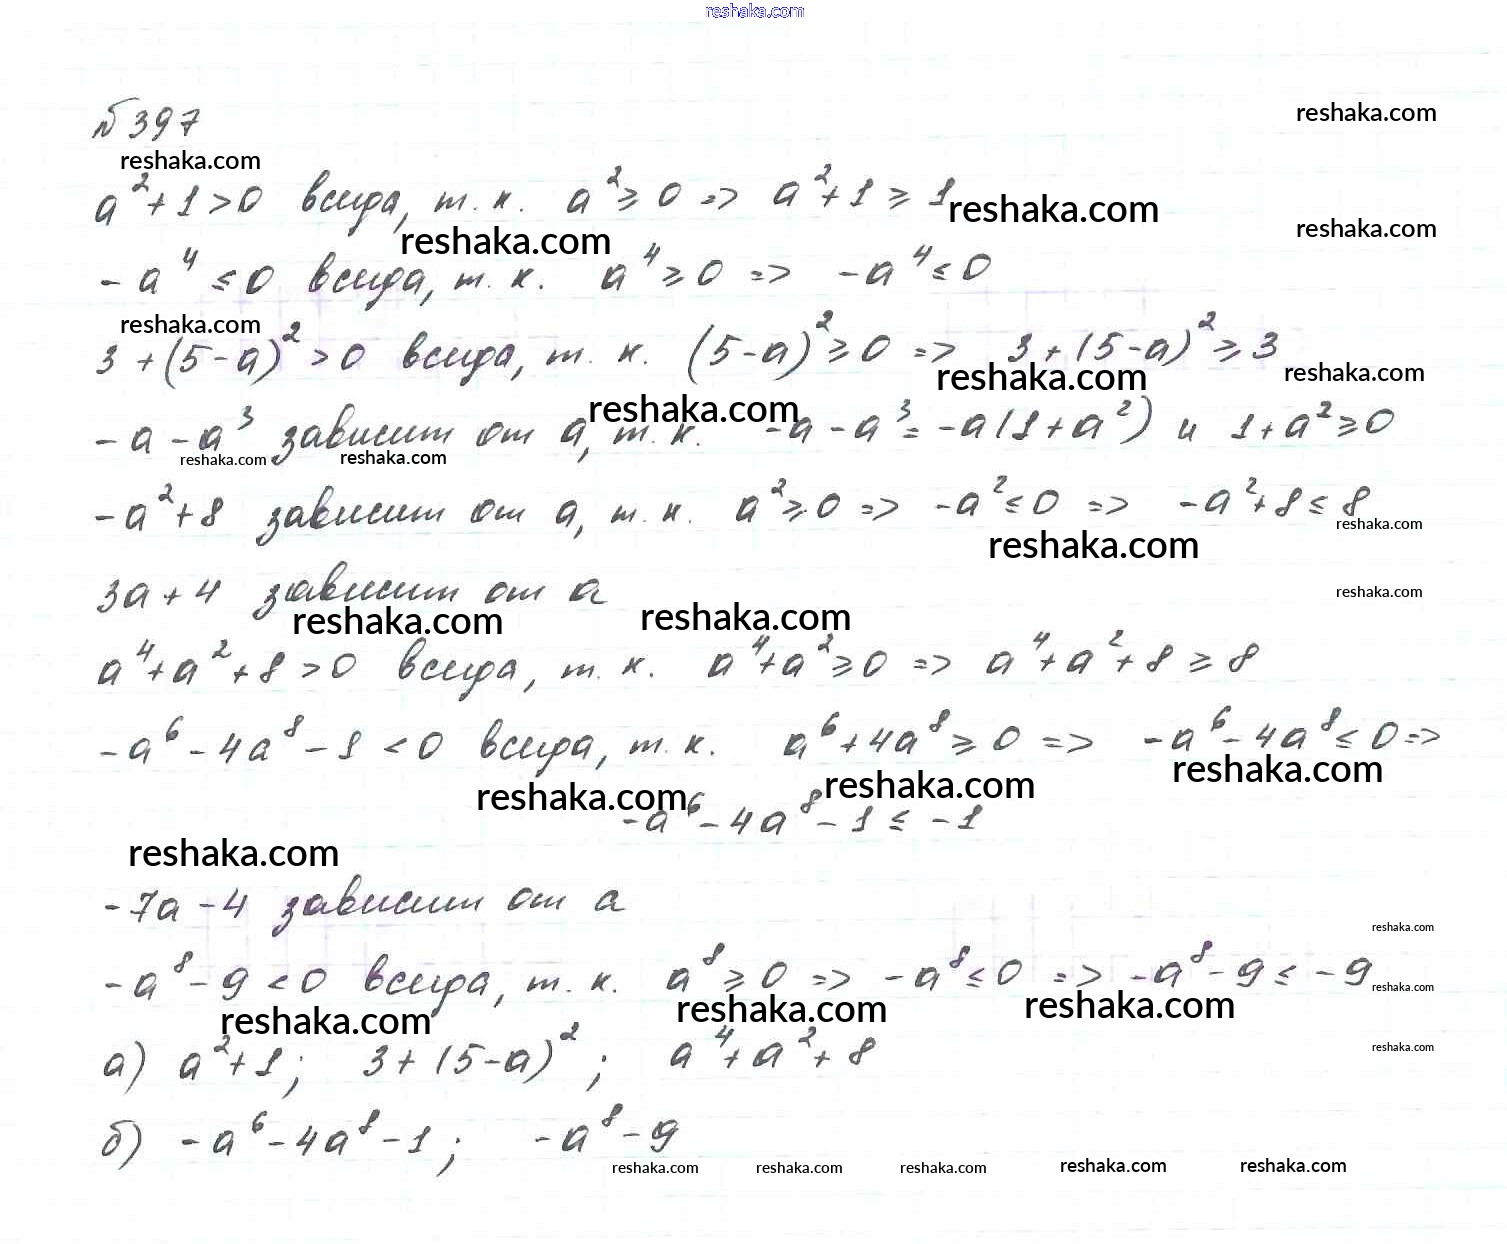 reshaka.com
№ 397
reshaka.com
reshaka.com
a² + 1 > 0 всегда, т. к. a² ≥ 0 => a² + 1 ≥ 1
reshaka.com
reshaka.com
reshaka.com
-a⁴ ≤ 0 всегда, т. к. a⁴ ≥ 0 => -a⁴ ≤ 0
reshaka.com
3 + (5 - a)² > 0 всегда, т. к. (5 - a)² ≥ 0 => 3 + (5 - a)² ≥ 3
reshaka.com
reshaka.com
reshaka.com
-a - a³ зависит от a, т. к. -a - a³ = -a(1 + a²) и 1 + a² ≥ 0
reshaka.com
reshaka.com
-a² + 8 зависит от a, т. к. a² ≥ 0 => -a² ≤ 0 => -a² + 8 ≤ 8
reshaka.com
reshaka.com
3a + 4 зависит от a
reshaka.com
reshaka.com
reshaka.com
a⁴ + a² + 8 > 0 всегда, т. к. a⁴ + a² ≥ 0 => a⁴ + a² + 8 ≥ 8
-a⁶ - 4a⁸ - 1 < 0 всегда, т. к. a⁶ + 4a⁸ ≥ 0 => -a⁶ - 4a⁸ ≤ 0 =>
reshaka.com
reshaka.com
reshaka.com
-a⁶ - 4a⁸ - 1 ≤ -1
reshaka.com
-7a - 4 зависит от a
reshaka.com
-a⁸ - 9 < 0 всегда, т. к. a⁸ ≥ 0 => -a⁸ ≤ 0 => -a⁸ - 9 ≤ -9
reshaka.com
reshaka.com
reshaka.com
reshaka.com
а) a² + 1; 3 + (5 - a)²; a⁴ + a² + 8
reshaka.com
б) -a⁶ - 4a⁸ - 1; -a⁸ - 9
reshaka.com reshaka.com reshaka.com reshaka.com reshaka.com